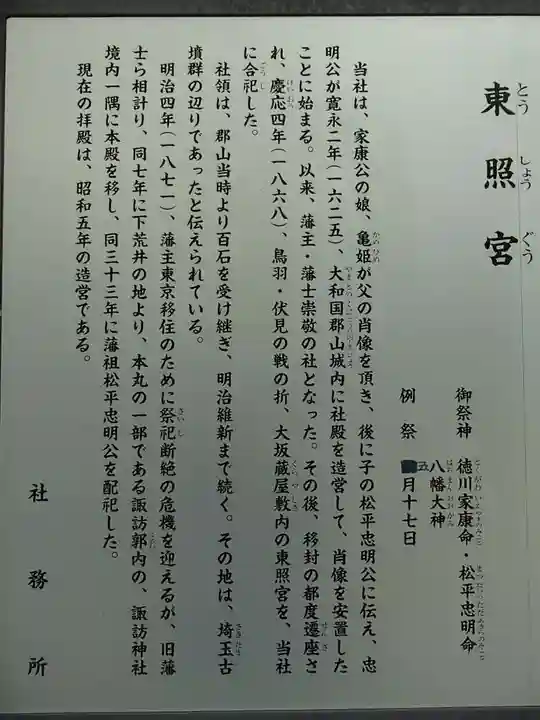 東照宮
とうしょうぐう
御祭神 徳川家康命・松平忠明命
八幡大神
例祭 五月十七日
当社は、家康公の娘、亀姫が父の肖像を頂き、後に子の松平忠明公に伝え、忠
明公が寛永二年(一六二五)、大和国郡山城内に社殿を造営して、肖像を安置した
ことに始まる。以来、藩主・藩士崇敬の社となった。その後、移封の都度遷座さ
れ、慶応四年(一八六八)、鳥羽・伏見の戦の折、大坂蔵屋敷内の東照宮を、当社
に合祀した。
社領は、郡山当時より百石を受け継ぎ、明治維新まで続く。その地は、埼玉古
墳群の辺りであったと伝えられている。
明治四年(一八七一)、藩主東京移住のために祭祀断絶の危機を迎えるが、旧藩
士ら相計り、同七年に下荒井の地より、本丸の一部である諏訪郭内の、諏訪神社
境内一隅に本殿を移し、同三十三年に藩祖松平忠明公を配祀した。
現在の拝殿は、昭和五年の造営である。
社務所